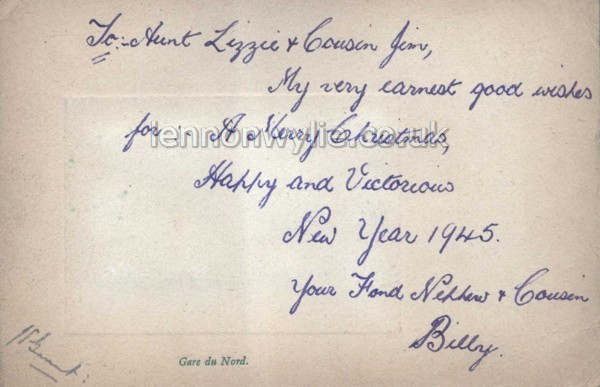 To:- Aunt Lizzie & Cousin Jim,
My very earnest good wishes
for - A Merry Christmas,
lennonwylie.co.uk
Happy and Victorious
New Year 1945.
Your Fond Nephew & Cousin
Billy.
Gare du Nord.